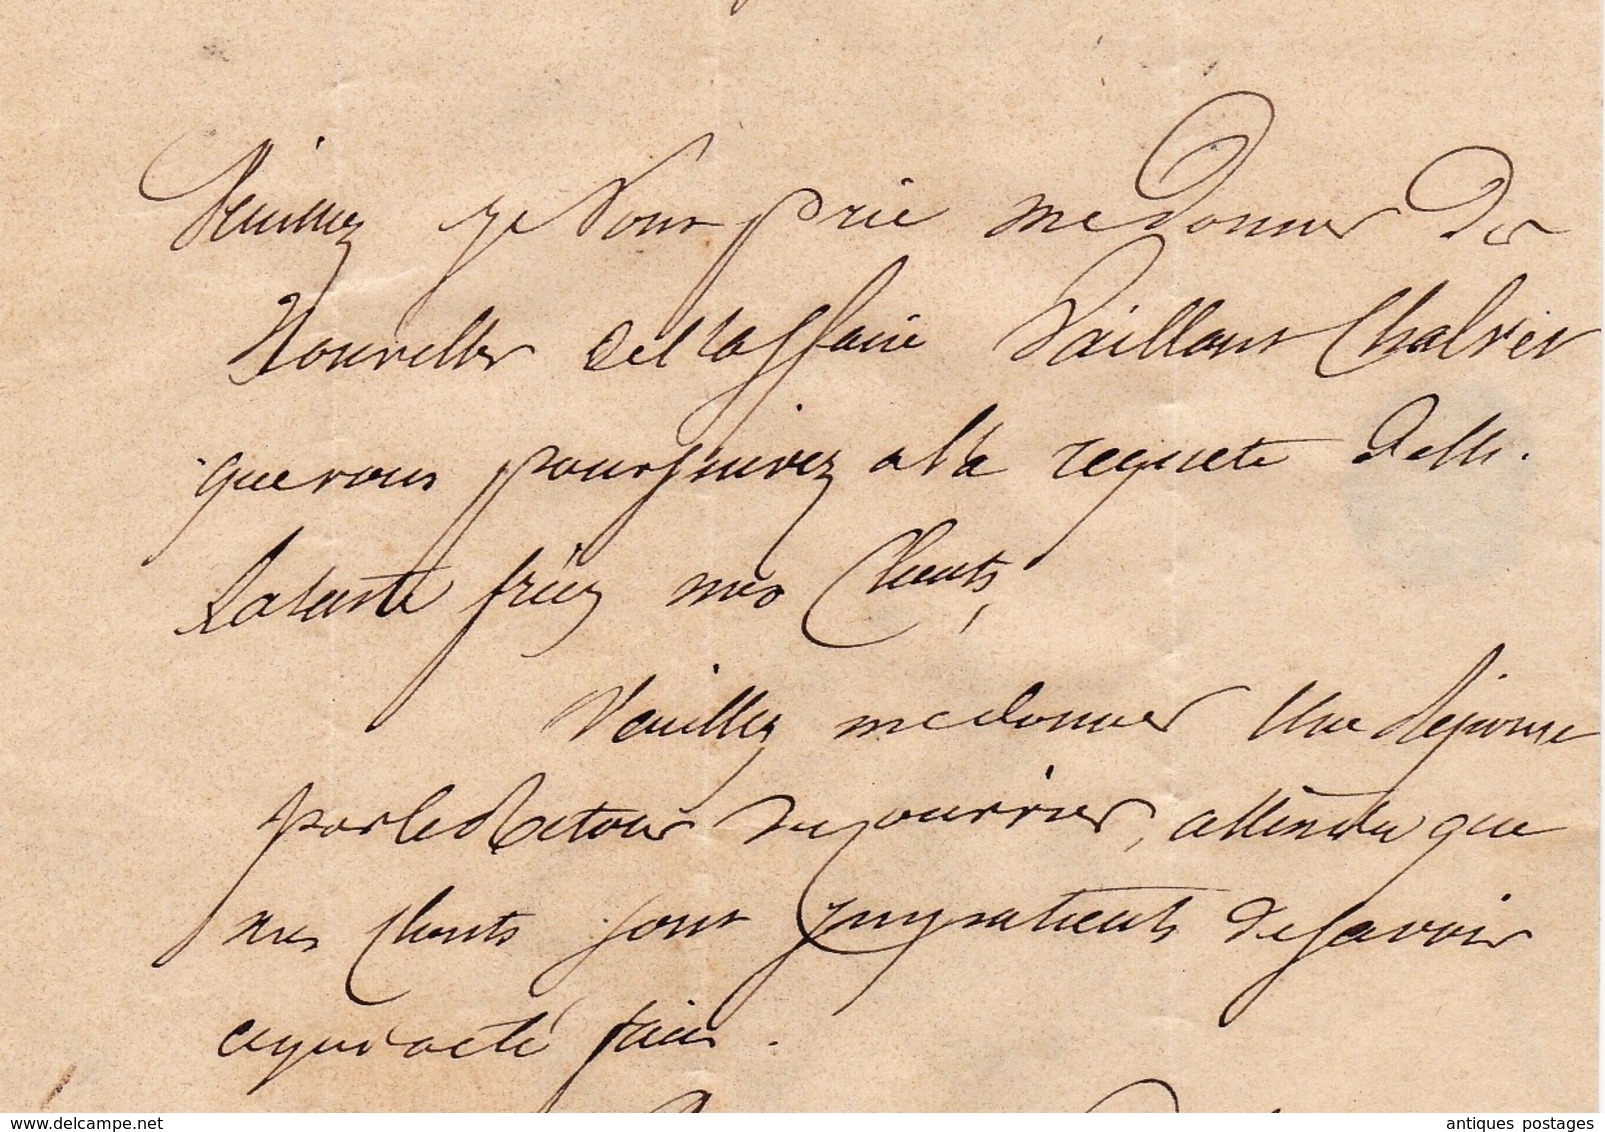 Veuillez je vous prie me donner des
Nouvelles de l'affaire Vaillant Chalvet
que vous poursuivez a la requete de M.
frères mes Clients,
Veuillez me donner Une Réponse
par le Retour du courrier, attendu que
mes Clients sont impatients de savoir
ce qui a été fait.
delcampe.net
antiques postages